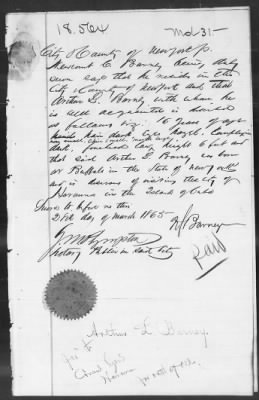 18.564 Md 31
City & County of Newport ss.
C. Barney being duly
sworn says that he resides in the
City & County of Newport and that
Arthur L. Barney with whom he
is well acquainted is described
as follows viz. 16 years of age
hair dark, Eyes hazel, Complexion
dark, forehead large height 6 feet and
that said Arthur L. Barney was born
at Buffalo in the State of New York and
is desirous of visiting the City of
Havanna in the Island of Cuba
Sworn to before me this
21st day of March 1865
Barney
Notary Public in said City
paid
Arthur L. Barney
for
Havana